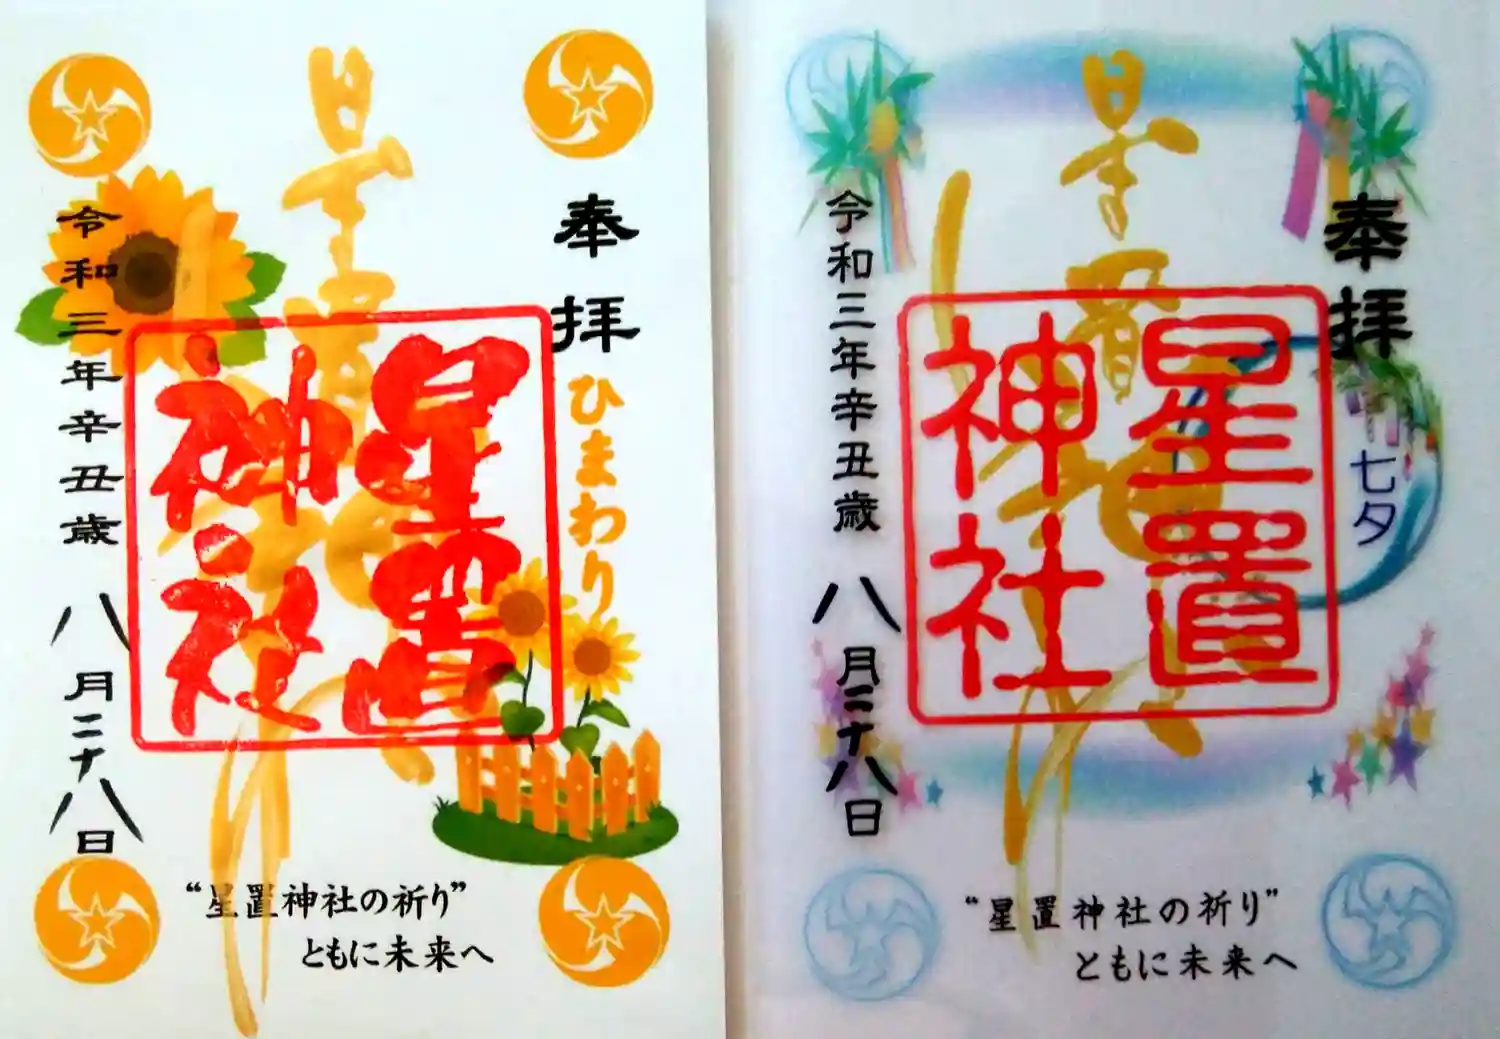 奉拝
ひまわり
星置神社
星置神社
令和三年辛丑歳 八月二十八日
“星置神社の祈り”
ともに未来へ
奉拝
七夕
星置神社
星置神社
令和三年辛丑歳 八月二十八日
“星置神社の祈り”
ともに未来へ